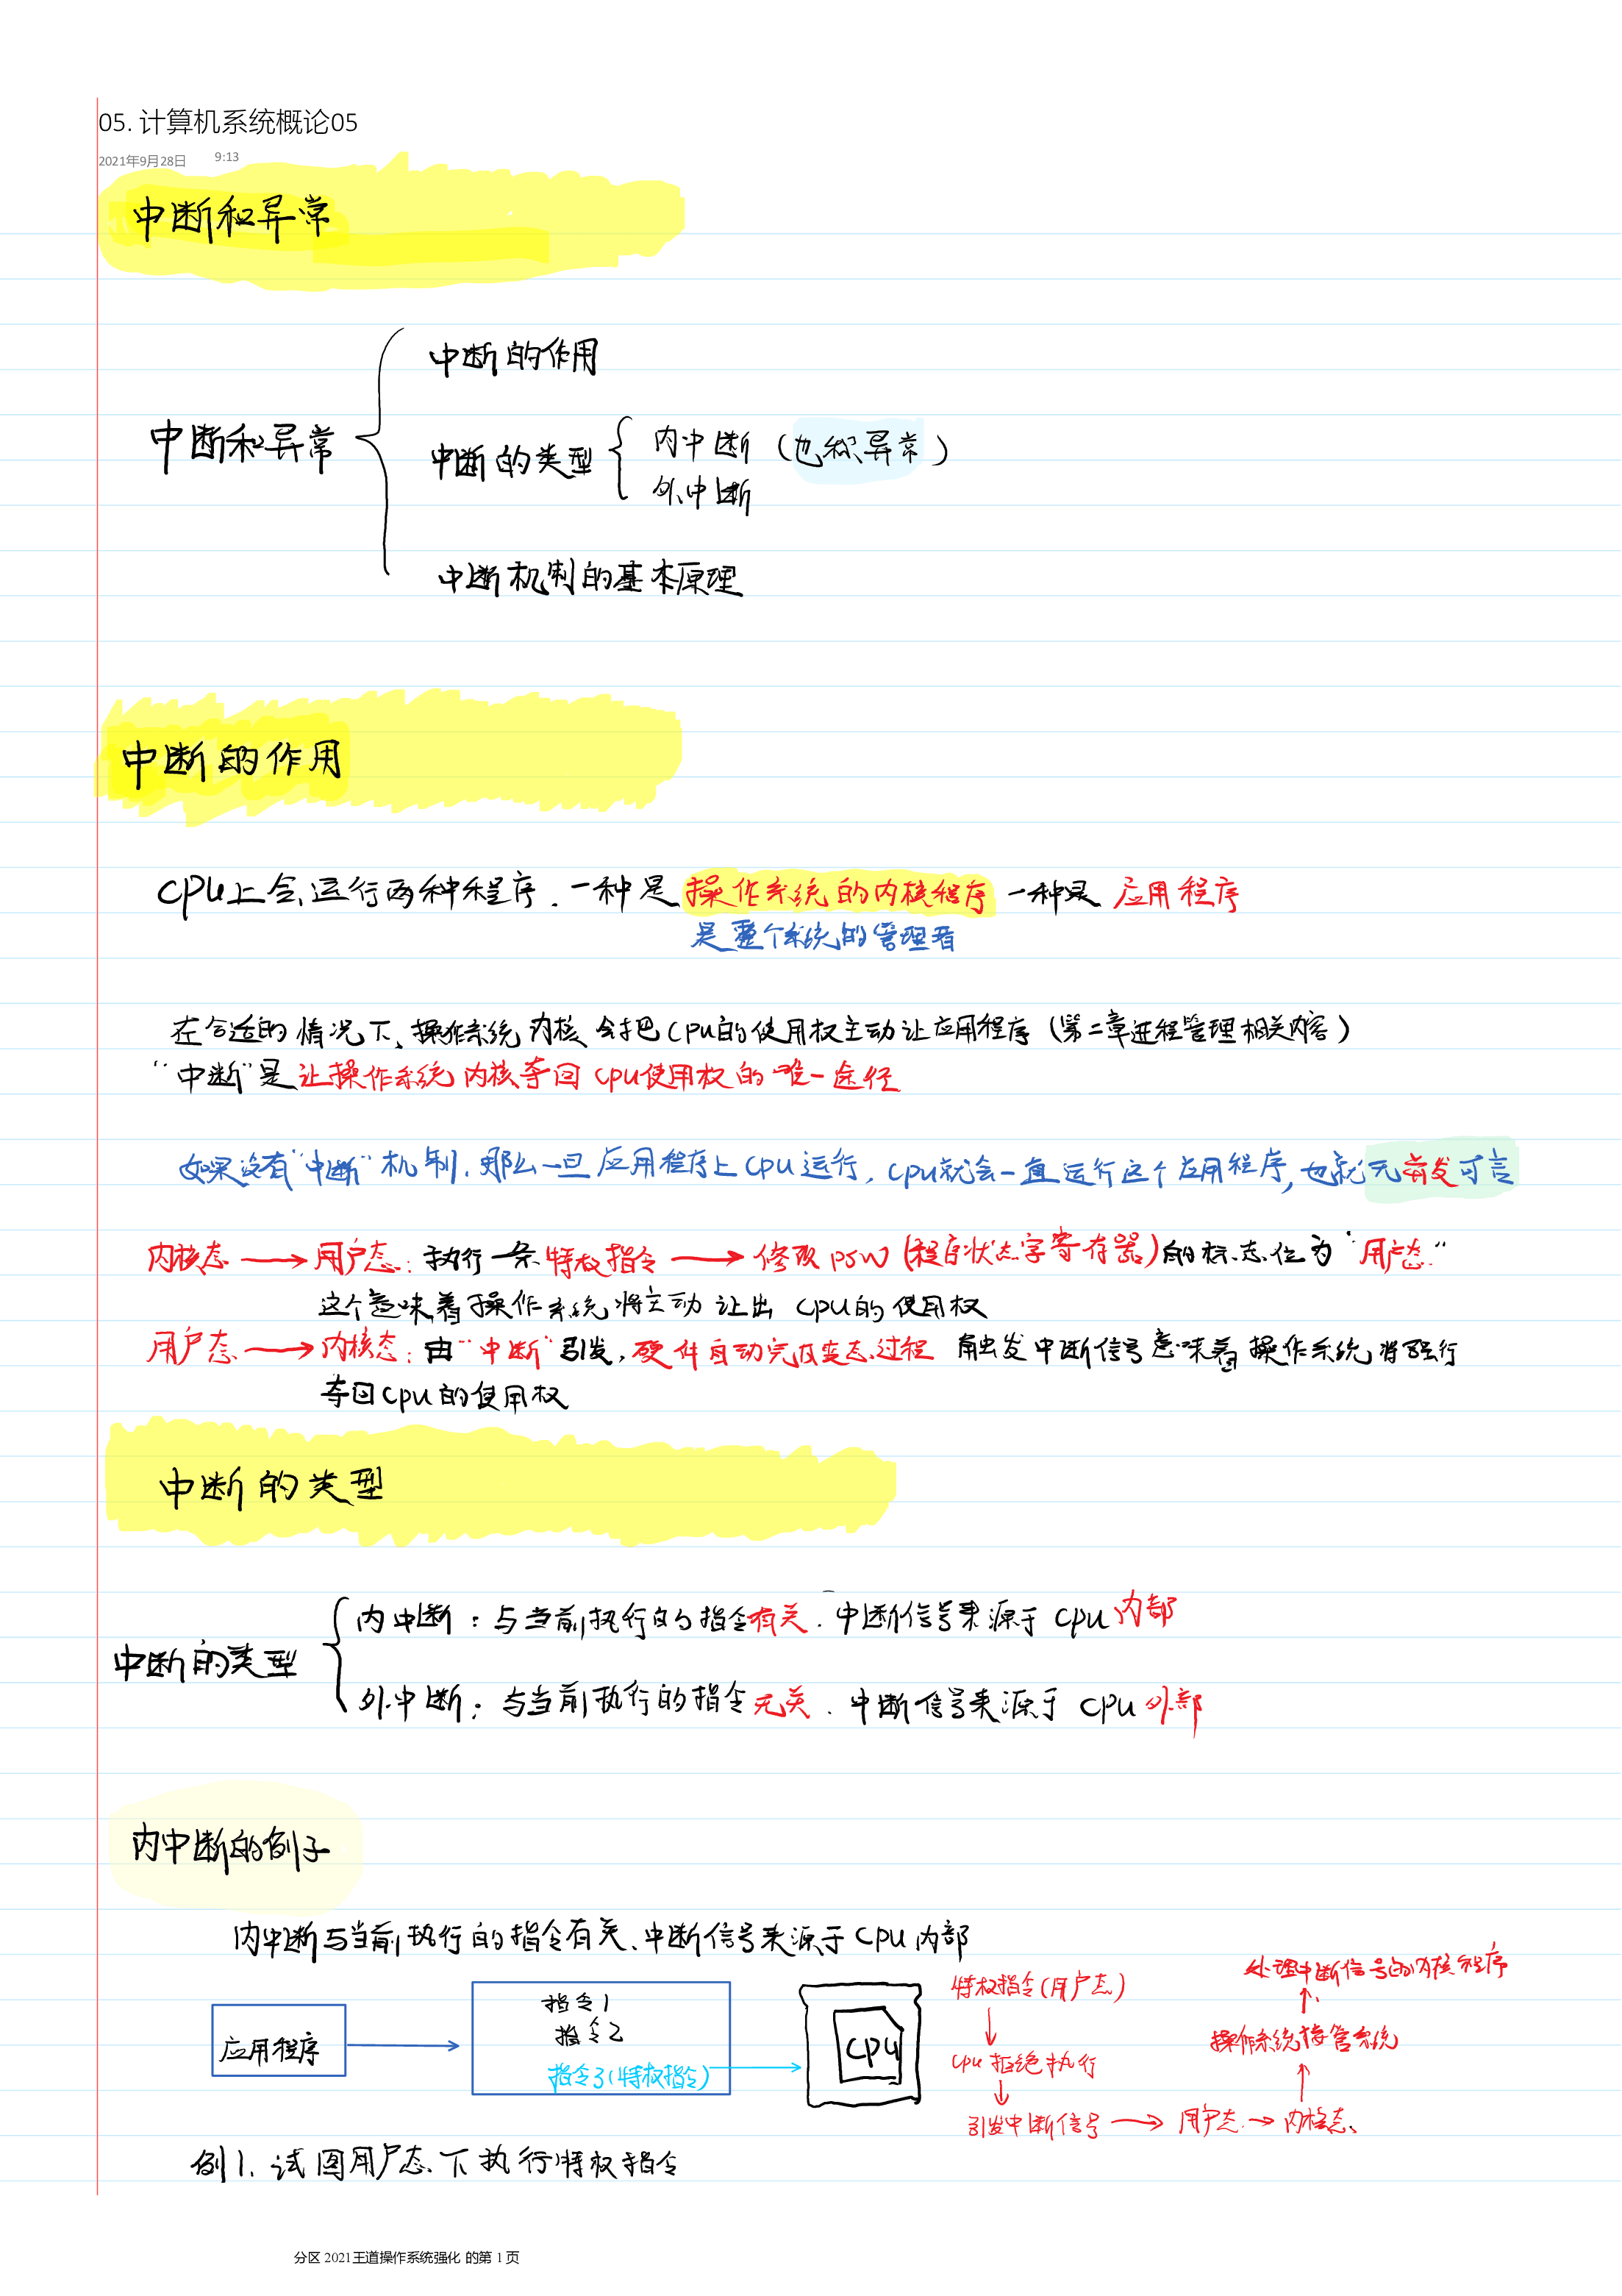 05. 计算机系统概论05
2021年9月28日 9:13
中断和异常
中断的作用
中断和异常
中断的类型
内中断（也称异常）
外中断
中断机制的基本原理
中断的作用
CPU上会运行两种程序．一种是操作系统的内核程序 一种是 应用程序
是整个系统的管理者
在合适的情况下、操作系统内核会把CPU的使用权主动让应用程序（第二章进程管理相关内容）
“中断”是让操作系统内核夺回CPU使用权的唯一途径
如果没有“中断”机制．那么一旦应用程序上CPU运行，CPU就会一直运行这个应用程序，也就无并发可言
内核态→用户态：执行一条特权指令→修改PSW（程序状态字寄存器）的标志位为“用户态”
这个意味着操作系统将主动让出CPU的使用权
用户态→内核态：由“中断”引发，硬件自动完成变态过程 触发中断信号意味着操作系统将强行
夺回CPU的使用权
中断的类型
内中断：与当前执行的指令有关．中断信号来源于CPU内部
中断的类型
外中断：与当前执行的指令无关．中断信号来源于CPU外部
内中断的例子
内中断与当前执行的指令有关、中断信号来源于CPU内部
应用程序
指令1
指令2
指令3（特权指令）
CPU
特权指令（用户态）
CPU拒绝执行
引发中断信号→用户态→内核态
操作系统接管系统
处理中断信号的内核程序
例1、试图用户态下执行特权指令
分区 2021王道操作系统强化 的第 1 页